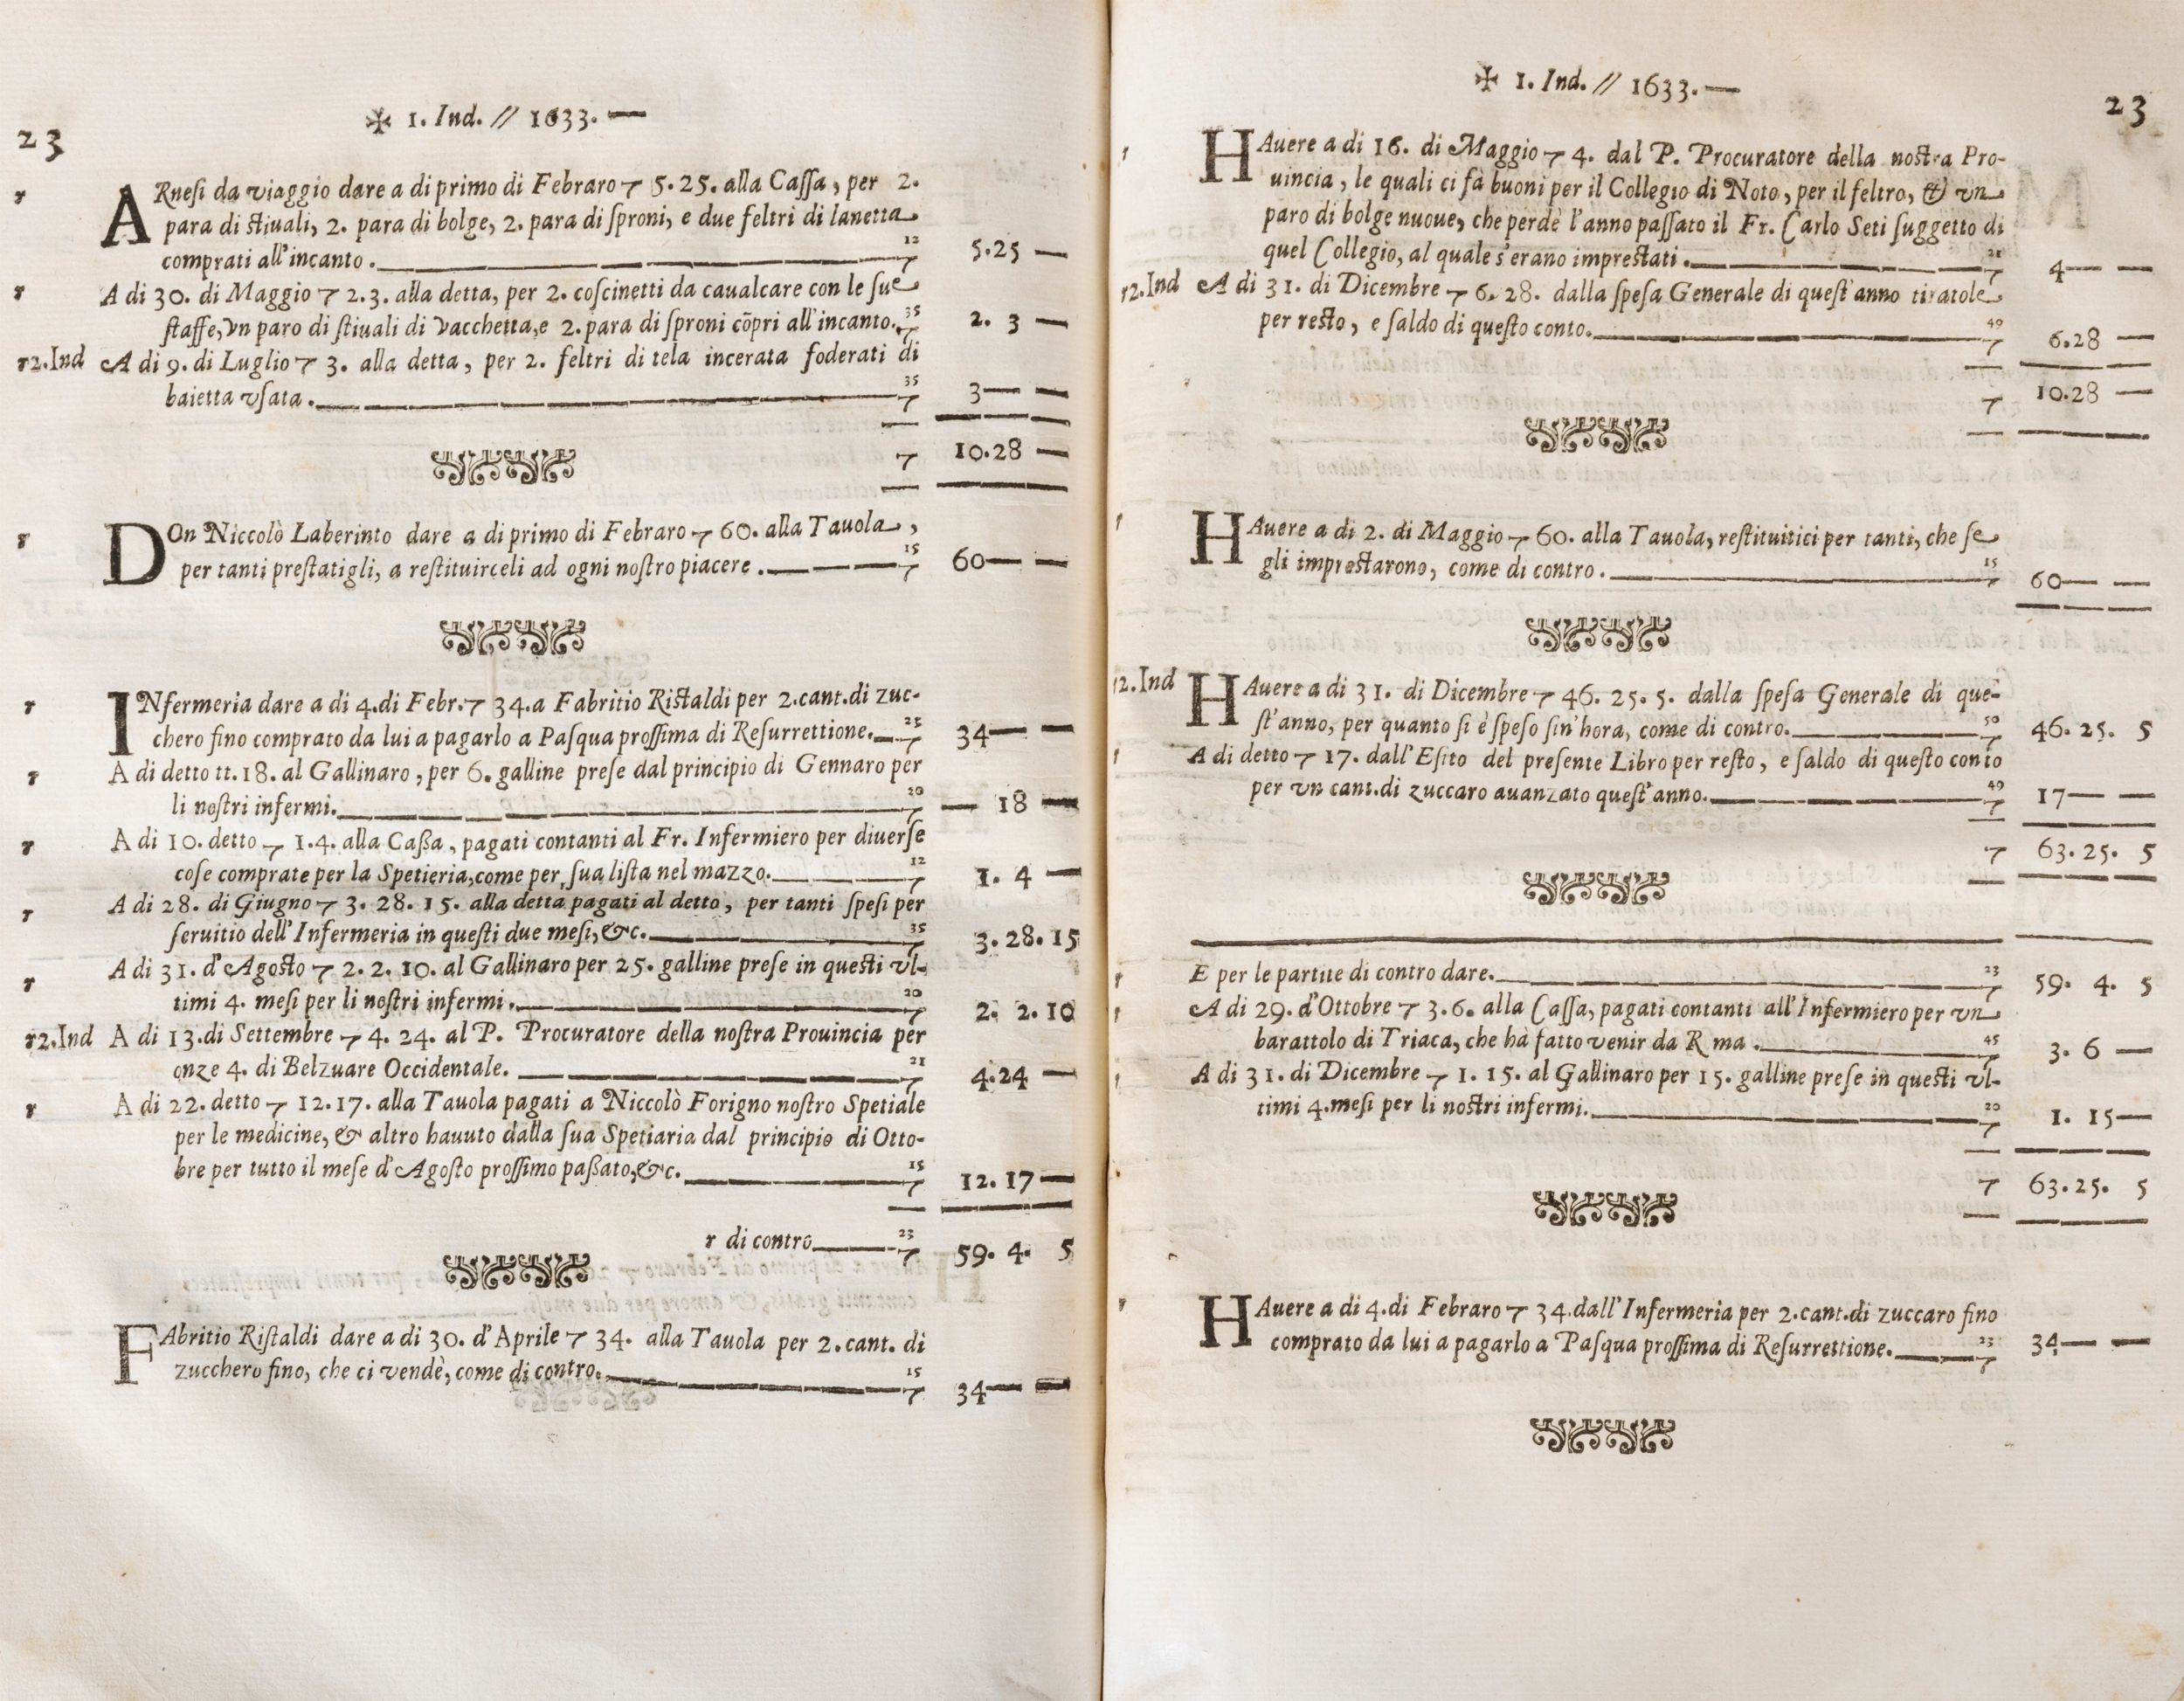 23
✠ 1. Ind. // 1633. —
r ARnesi da viaggio dare a di primo di Febraro 7 5.25. alla Cassa, per 2.
para di stiuali, 2. para di bolge, 2. para di sproni, e due feltri di lanetta
comprati all'incanto. — 12 7 5.25 —
r A di 30. di Maggio 7 2.3. alla detta, per 2. coscinetti da caualcare con le sue
staffe, vn paro di stiuali di vacchetta, e 2. para di sproni cõpri all'incanto. 35 7 2. 3 —
r2.Ind A di 9. di Luglio 7 3. alla detta, per 2. feltri di tela incerata foderati di
baietta vsata. — 35 7 3— —
7 10.28 —
r DOn Niccolò Laberinto dare a di primo di Febraro 7 60. alla Tauola,
per tanti prestatigli, a restituirceli ad ogni nostro piacere. — 15 7 60— —
r INfermeria dare a di 4.di Febr. 7 34.a Fabritio Ristaldi per 2.cant.di zuc-
chero fino comprato da lui a pagarlo a Pasqua prossima di Resurrettione. — 23 7 34— —
r A di detto tt.18. al Gallinaro, per 6. galline prese dal principio di Gennaro per
li nostri infermi. — 20 7 — 18 —
r A di 10. detto 7 1.4. alla Cassa, pagati contanti al Fr. Infermiero per diuerse
cose comprate per la Spetieria, come per sua lista nel mazzo. — 12 7 1. 4 —
r A di 28. di Giugno 7 3. 28. 15. alla detta pagati al detto, per tanti spesi per
seruitio dell'Infermeria in questi due mesi, &c. — 35 7 3. 28. 15
r A di 31. d'Agosto 7 2. 2. 10. al Gallinaro per 25. galline prese in questi vl-
timi 4. mesi per li nostri infermi. — 20 7 2. 2. 10
r2.Ind A di 13.di Settembre 7 4. 24. al P. Procuratore della nostra Prouincia per
onze 4. di Belzuare Occidentale. — 21 7 4.24 —
r A di 22. detto 7 12.17. alla Tauola pagati a Niccolò Forigno nostro Spetiale
per le medicine, & altro hauuto dalla sua Spetiaria dal principio di Otto-
bre per tutto il mese d'Agosto prossimo passato, &c. — 15 7 12. 17 —
r di contro — 23 7 59. 4. 5
FAbritio Ristaldi dare a di 30. d'Aprile 7 34. alla Tauola per 2. cant. di
zucchero fino, che ci vendè, come di contro. — 15 7 34— —
✠ 1. Ind. // 1633. —
23
r HAuere a di 16. di Maggio 7 4. dal P. Procuratore della nostra Pro-
uincia, le quali ci fà buoni per il Collegio di Noto, per il feltro, & vn
paro di bolge nuoue, che perdè l'anno passato il Fr. Carlo Seti suggetto di
quel Collegio, al quale s'erano imprestati. — 21 7 4— —
r2.Ind A di 31. di Dicembre 7 6. 28. dalla spesa Generale di quest'anno tiratole
per resto, e saldo di questo conto. — 49 7 6.28 —
7 10.28 —
r HAuere a di 2. di Maggio 7 60. alla Tauola, restituitici per tanti, che se
gli imprestarono, come di contro. — 15 7 60— —
r2.Ind HAuere a di 31. di Dicembre 7 46. 25. 5. dalla spesa Generale di que-
st'anno, per quanto si è speso sin'hora, come di contro. — 50 7 46. 25. 5
r A di detto 7 17. dall'Esito del presente Libro per resto, e saldo di questo conto
per vn cant.di zuccaro auanzato quest'anno. — 49 7 17— —
7 63. 25. 5
r E per le partite di contro dare. — 23 7 59. 4. 5
r A di 29. d'Ottobre 7 3.6. alla Cassa, pagati contanti all'Infermiero per vn
barattolo di Triaca, che hà fatto venir da R ma. — 45 7 3. 6 —
r A di 31. di Dicembre 7 1. 15. al Gallinaro per 15. galline prese in questi vl-
timi 4.mesi per li nostri infermi. — 20 7 1. 15—
7 63. 25. 5
r HAuere a di 4.di Febraro 7 34.dall'Infermeria per 2.cant.di zuccaro fino
comprato da lui a pagarlo a Pasqua prossima di Resurrettione. — 23 7 34— —